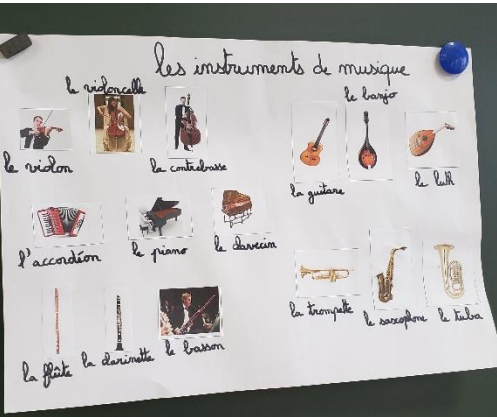 les instruments de musique
le violoncelle
le banjo
le violon
la contrebasse
la guitare
le luth
l'accordéon
le piano
le clavecin
la trompette
le saxophone
le tuba
la flûte
la clarinette
le basson